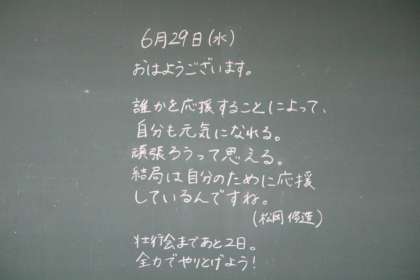 6月29日(水)
おはようございます。
誰かを応援することによって、
自分も元気になれる。
頑張ろうって思える。
結局は自分のために応援
しているんですね。
(松岡修造)
壮行会まであと2日。
全力でやりとげよう!